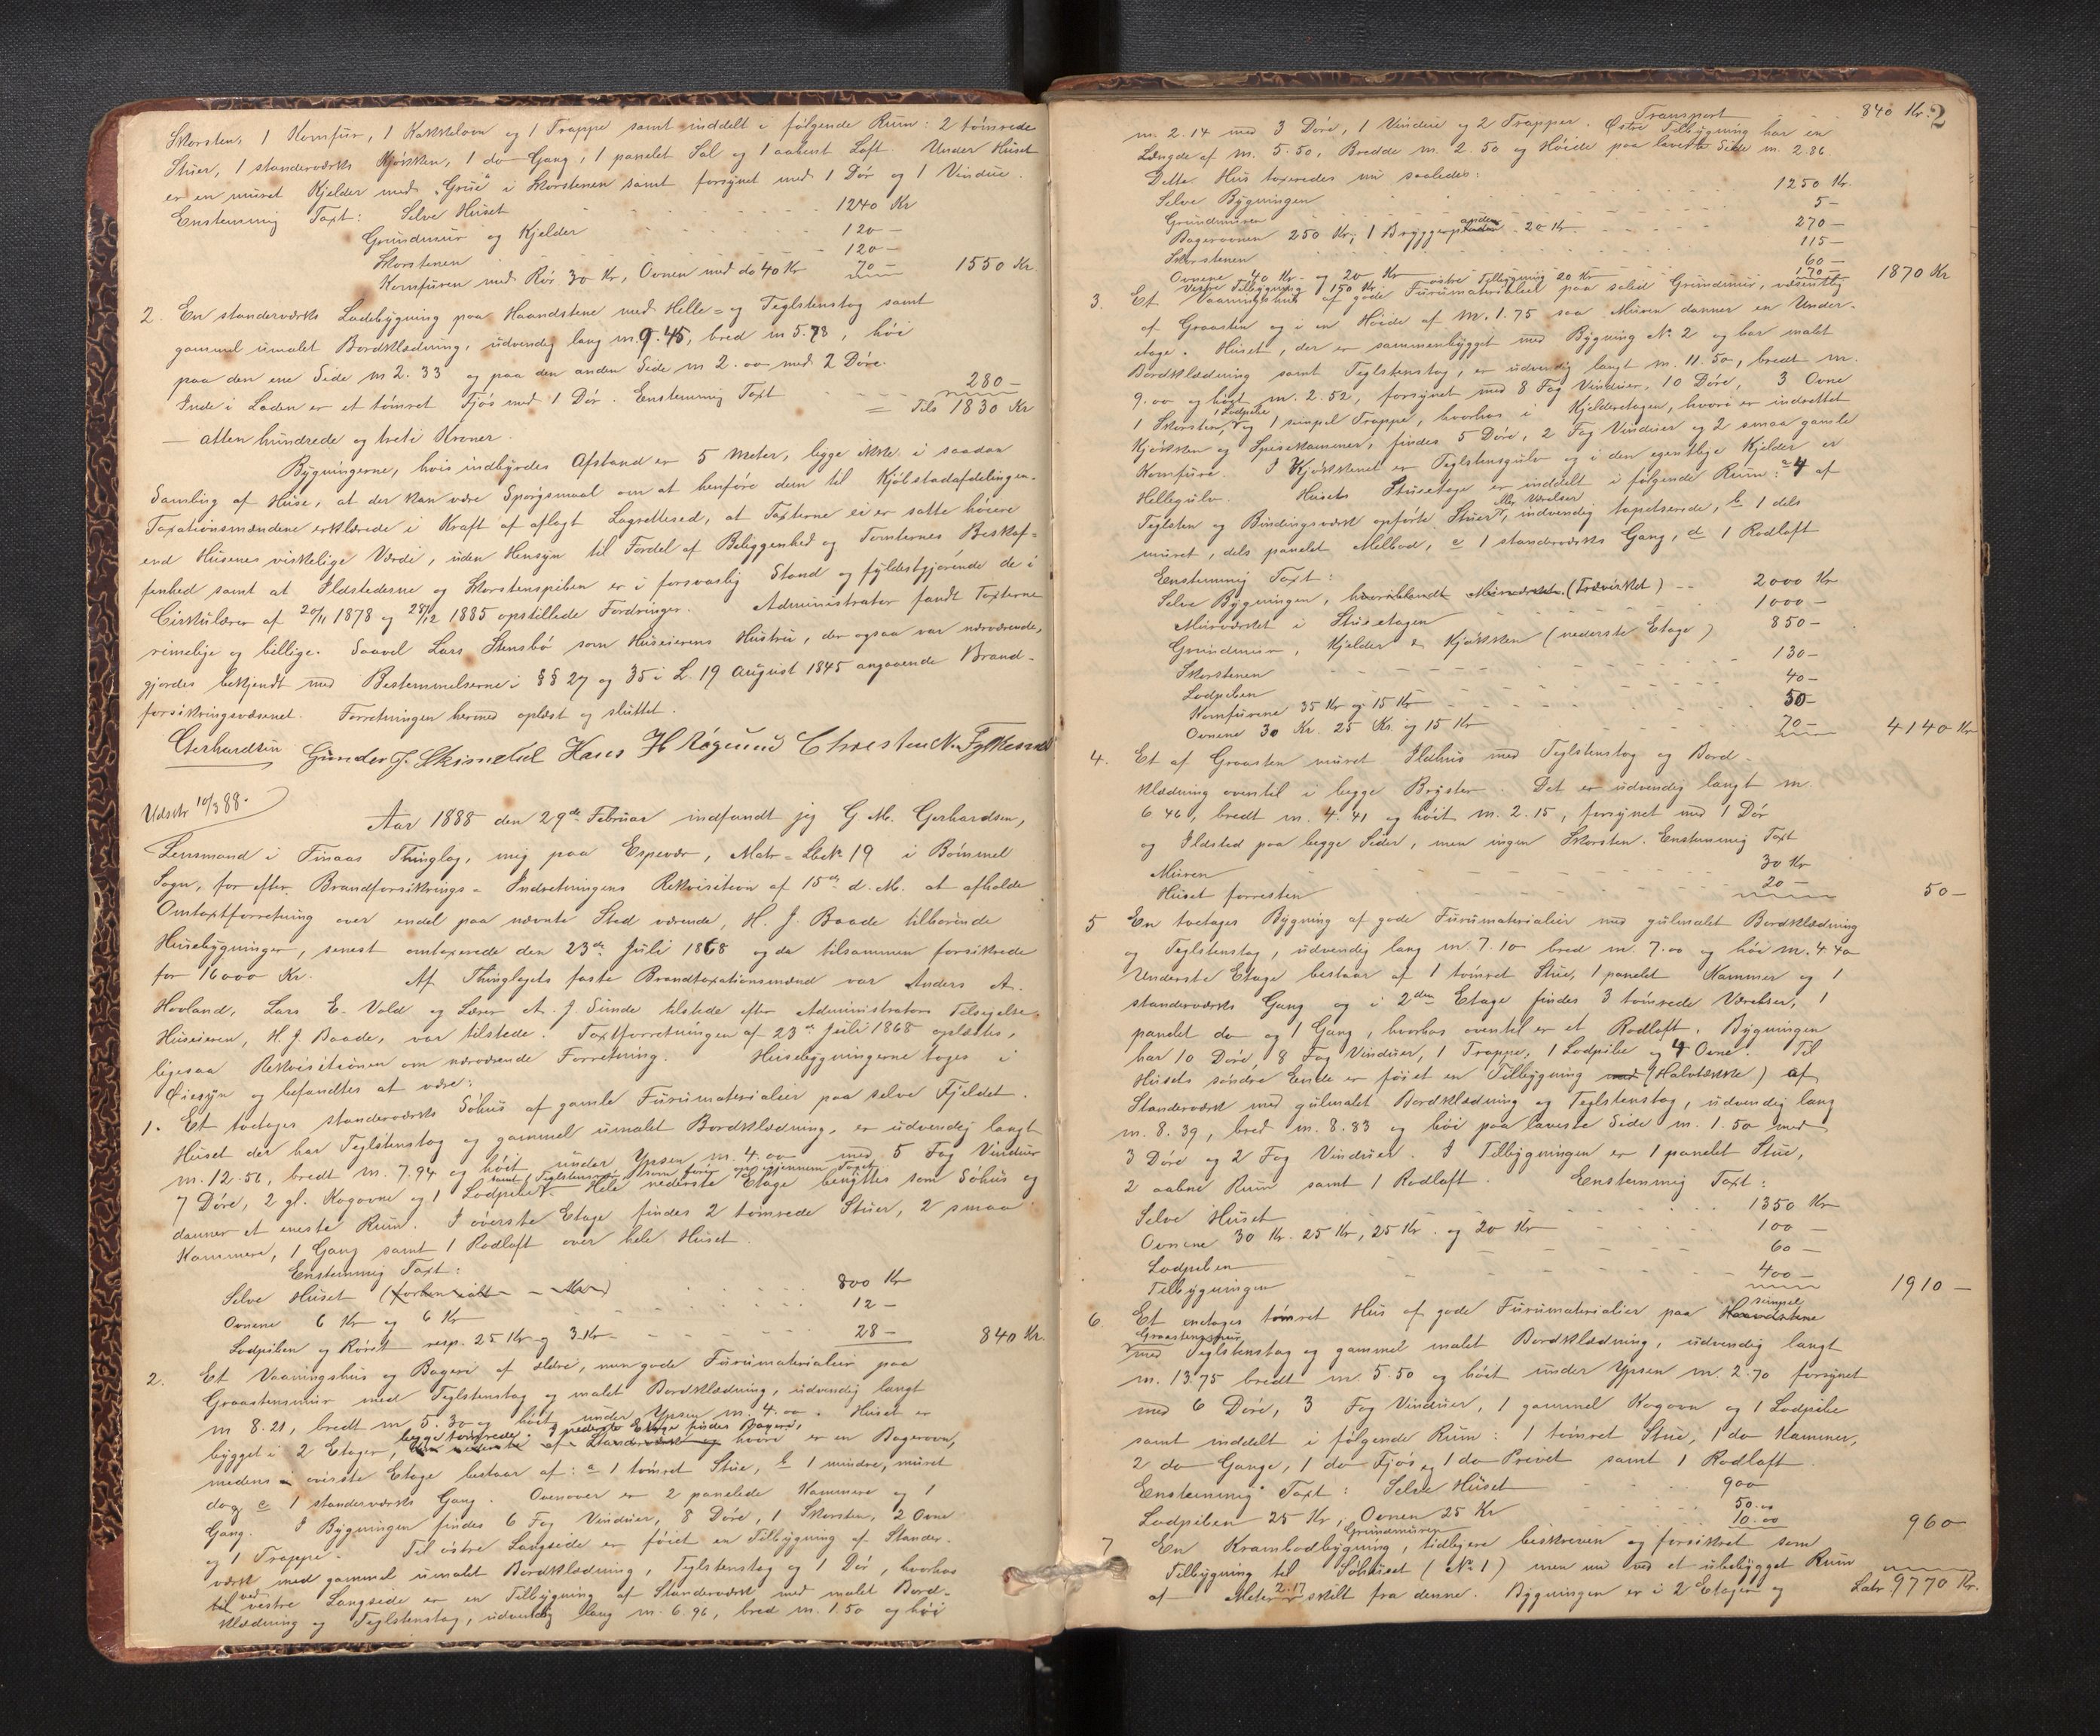 Skorsten, 1 Komfur, 1 Kakkelovn og 1 Trappe samt inddelt i følgende Rum: 2 tømrede
Stuer, 1 standerværks Kjøkken, 1 do Gang, 1 panelet Sal og 1 aabent Loft. Under Huset
er en muret Kjelder med "Grue" i Skorstenen samt forsynet med 1 Dør og 1 Vindue.
Enstemmig Taxt: Selve Huset 1240 Kr
Grundmur og Kjelder 120 —
Skorstenen 120 —
Komfuren med Rør 30 Kr, Ovnen med do 40 Kr 70 — 1550 Kr.
2. En standerværks Ladebygning paa Haandstene med Helle- og Teglstenstag samt
gammel umalet Bordklædning, udvendig lang m. 9.45, bred m 5.78, høi
paa den ene Side m 2.33 og paa den anden Side m 2.00 med 2 Døre.
Inde i Laden er et tømret Fjøs med 1 Dør. Enstemmig Taxt 280 —
= Tils 1830 Kr
— atten hundrede og treti Kroner.
Bygningerne, hvis indbyrdes Afstand er 5 Meter, ligge ikke i saadan
Samling af Huse, at der kan være Spørgsmaal om at henføre dem til Kjøbstadafdelingen.
Taxationsmændene erklærede i Kraft af aflagt Lagrettesed, at Taxterne ei er satte høiere
end Husenes virkelige Værdi, uden Hensyn til Fordel af Beliggenhed og Tomternes Beskaf-
fenhed samt at Ildstederne og Skorstenspiben er i forsvarlig Stand og fyldestgjørende de i
Cirkulærer af 20/11 1878 og 28/12 1885 opstillede Fordringer. Administrator fandt Taxterne
rimelige og billige. Saavel Lars Stensbø som Huseierens Hustru, der ogsaa var nærværende,
gjordes bekjendt med Bestemmelserne i §§ 27 og 35 i L. 19 August 1845 angaaende Brand-
forsikringsvæsenet. Forretningen hermed oplæst og sluttet.
Gerhardsen Gunder J. Skimeland Hans H Røgund Chresten N.
Udskr 10/3 88.
Aar 1888 den 29de Februar indfandt jeg G M. Gerhardsen,
Lensmand i Finaas Thinglag, mig paa Espevær, Matr-Lbe№ 19 i Bømmel
Sogn, for efter Brandforsikrings-Indretningens Rekvisition af 15de d.M. at afholde
Omtaxtforretning over endel paa nævnte Sted værende, H. J. Baade tilhørende
Husebygninger, senest omtaxerede den 23de Juli 1868 og da tilsammen forsikrede
for 16000 Kr. Af Thinglagets faste Brandtaxationsmænd var Anders A.
Hovland, Lars E. Vold og Lærer A. J. Sunde tilstede efter Administrators Tilsigelse.
Huseieren, H. J. Baade, var tilstede. Taxtforretningen af 23de Juli 1868 oplæstes,
ligesaa Rekvisitionen om nærværende Forretning. Husebygningerne toges i
Øiesyn og befandtes at være:
1. Et toetages standerværks Søhus af gamle Furumaterialier paa selve Fjeldet.
Huset der har Teglstenstag og gammel umalet Bordklædning, er udvendig langt
m. 12.56, bredt m. 7.94 og høit under Ypsen m. 4.00 med 5 Fag Vinduer
samt 1 Teglstensrør som gaar op igjennem Taget
7 Døre, 2 gl. Kogovne og 1 Lodpibe. Hele nederste Etage benyttes som Søhus og
danner et eneste Rum. I øverste Etage findes 2 tømrede Stuer, 2 smaa
Kammere, 1 Gang samt 1 Rodloft over hele Huset.
Enstemmig Taxt:
Selve Huset 800 Kr
Ovnene 6 Kr og 6 Kr 12 —
Lodpiben og Røret resp. 25 Kr og 3 Kr 28 — 840 Kr.
2. Et Vaaningshus og Bageri af ældre, men gode Furumaterialier paa
Graastensmur med Teglstenstag og malet Bordklædning, udvendig langt
m 8.21, bredt m 5.30 og høit under Ypsen m. 4.00. Huset er
begge tømrede. I nederste Etage findes Bageri,
bygget i 2 Etager, hvori er en Bagerovn,
medens øverste Etage bestaar af: a 1 tømret Stue, b 1 mindre, muret
do og c 1 standerværks Gang. Ovenover er 2 panelede Kammere og 1
Gang. I Bygningen findes 6 Fag Vinduer, 8 Døre, 1 Skorsten, 2 Ovne
og 1 Trappe. Til østre Langside er føiet en Tilbygning af Stander-
værk med gammel umalet Bordklædning, Teglstenstag og 1 Dør, hvorhos
ved vestre Langside er en Tilbygning af Standerværk med malet Bord-
klædning og Teglstenstag, udvendig lang m. 6.96, bred m. 1.50 og høi
Transport 840 Kr. 2
m. 2.14 med 3 Døre, 1 Vindue og 2 Trapper. Østre Tilbygning har en
Længde af m. 5.50, Bredde m. 2.50 og Høide paa laveste Side m. 2.86.
Dette Hus taxeredes nu saaledes:
Selve Bygningen 1250 Kr.
Grundmuren 5 —
Bagerovnen 250 Kr; 1 Bryggerpande 20 Kr 270 —
Skorstenen 115 —
Ovnene 40 Kr. og 20 Kr 60 —
Vestre Tilbygning 150 Kr. østre Tilbygning 20 Kr 170 — 1870 Kr
3. Et Vaaningshus af gode Furumaterialier paa solid Grundmur, væsentlig
af Graasten og i en Høide af m. 1.75 saa Muren danner en Under-
etage. Huset, der er sammenbygget med Bygning № 2 og har malet
Bordklædning samt Teglstenstag, er udvendig langt m. 11.50, bredt m.
9.00 og høit m. 2.52, forsynet med 8 Fag Vinduer, 10 Døre, 3 Ovne
1 Lodpibe
1 Skorsten, og 1 simpel Trappe, hvorhos i Kjelderetagen, hvori er indrettet
Kjøkken og Spisekammer, findes 5 Døre, 2 Fag Vinduer og 2 smaa gamle
Komfure. I Kjøkkenet er Teglstensgulv og i den egentlige Kjelder er
Hellegulv. Husets Stueetage er inddelt i følgende Rum: a 4 af
eller Værelser
Teglsten og Bindingsværk opførte Stuer, indvendig tapetserede, b 1 dels
muret, dels panelet Melbod, c 1 standerværks Gang, d 1 Rodloft
Enstemmig Taxt:
Selve Bygningen, (Træværket) 2000 Kr
Murværket i Stueetagen 1000 —
Grundmur, Kjelder & Kjøkken (nederste Etage) 850 —
Skorstenen 130 —
Lodpiben 40 —
Komfurene 35 Kr og 15 Kr 50 —
Ovnene 30 Kr. 25 Kr. og 15 Kr 70 — 4140 Kr
4. Et af Graasten muret Ildhus med Teglstenstag og Bord-
klædning oventil i begge Bryster. Det er udvendig langt m.
6.46, bredt m. 4.41 og høit m. 2.15, forsynet med 1 Dør
og Ildsted paa begge Sider, men ingen Skorsten. Enstemmig Taxt
Muren 30 Kr
Huset forresten 20 — 50 —
5 En toetages Bygning af gode Furumaterialier med gulmalet Bordklædning
og Teglstenstag, udvendig lang m 7.10 bred m. 7.00 og høi m. 4.40
Underste Etage bestaar af 1 tømret Stue, 1 panelet Kammer og 1
standerværks Gang og i 2den Etage findes 3 tømrede Værelser, 1
panelet do og 1 Gang, hvorhos oventil er et Rodloft. Bygningen
har 10 Døre, 8 Fag Vinduer, 1 Trappe, 1 Lodpibe og 4 Ovne. Til
Husets søndre Ende er føiet en Tilbygning med (Halvtække) af
Standerværk med gulmalet Bordklædning og Teglstenstag, udvendig lang
m. 8.39, bred m. 8.83 og høi paa laveste Side m. 1.50 med
3 Døre og 2 Fag Vinduer. I Tilbygningen er 1 panelet Stue,
2 aabne Rum samt 1 Rodloft. Enstemmig Taxt:
Selve Huset 1350 Kr
Ovnene 30 Kr. 25 Kr, 25 Kr. og 20 Kr 100 —
Lodpiben 60 —
Tilbygningen 400 — 1910 —
6. Et enetages tømret Hus af gode Furumaterialier paa simpel Haandstene
Graastensmur
med Teglstenstag og gammel malet Bordklædning, udvendig langt
m. 13.75 bredt m. 5.50 og høit under Ypsen m. 2.70 forsynet
med 6 Døre, 3 Fag Vinduer, 1 gammel Kogovn og 1 Lodpibe
samt inddelt i følgende Rum: 1 tømret Stue, 1 do Kammer,
2 do Gange, 1 do Fjøs og 1 do Privet samt 1 Rodloft.
Enstemmig Taxt: Selve Huset 900
Lodpiben 25 Kr, Ovnen 25 Kr 50.00
Grundmuren 10.00 960
7 En Krambodbygning, tidligere beskreven og forsikret som
Tilbygning til Søhuset (№ 1) men nu ved et ubebygget Rum
af Meter 2.17 skilt fra denne. Bygningen er i 2 Etager og Latr. 9770 Kr.